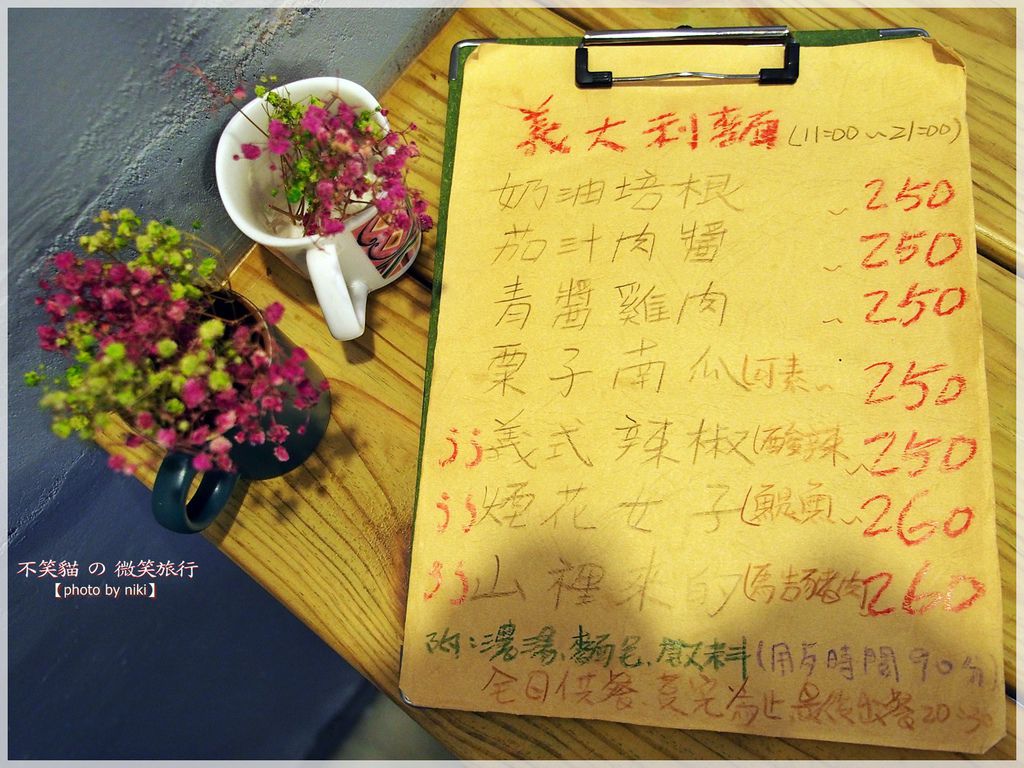 義大利麵(11:00~21:00)
奶油培根~250
茄汁肉醬~250
青醬雞肉~250
栗子南瓜(可素~250
jj義式辣椒(酸辣~250
jj煙花女子(鯷魚~260
jj山裡來的(馬告豬肉260
附:濃湯.麵包.飲料(用餐時間90分)
全日供餐.賣完為止.最後出餐20:30
不笑貓 の 微笑旅行
【photo by niki】